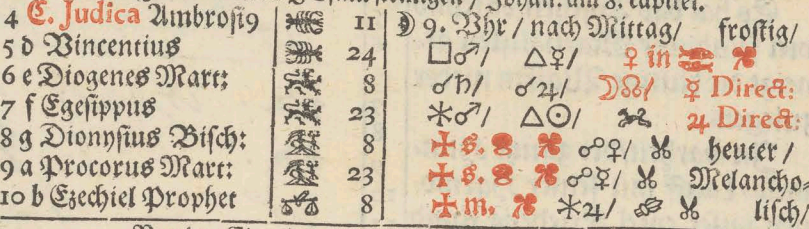 4 C. Judica Ambrosi9 11 ☽ 9. Vhr / nach Mittag / frostig /
5 d Vincentius 24 □♂ / △☿ / ♀ in ♓
6 e Diogenes Mart: 8 ☌♄ / ☌♃ / ☽☊ / ☿ Direct:
7 f Egesippus 23 ⚹♂ / △☉ / ♃ Direct:
8 g Dionysius Bisch: 8 ✠ s. ☍♀ / heuter /
9 a Procorus Mart: 23 ✠ s. ☍☿ / Melancho⸗
10 b Ezechiel Prophet 8 ✠ m. ⚹♃ / lisch /